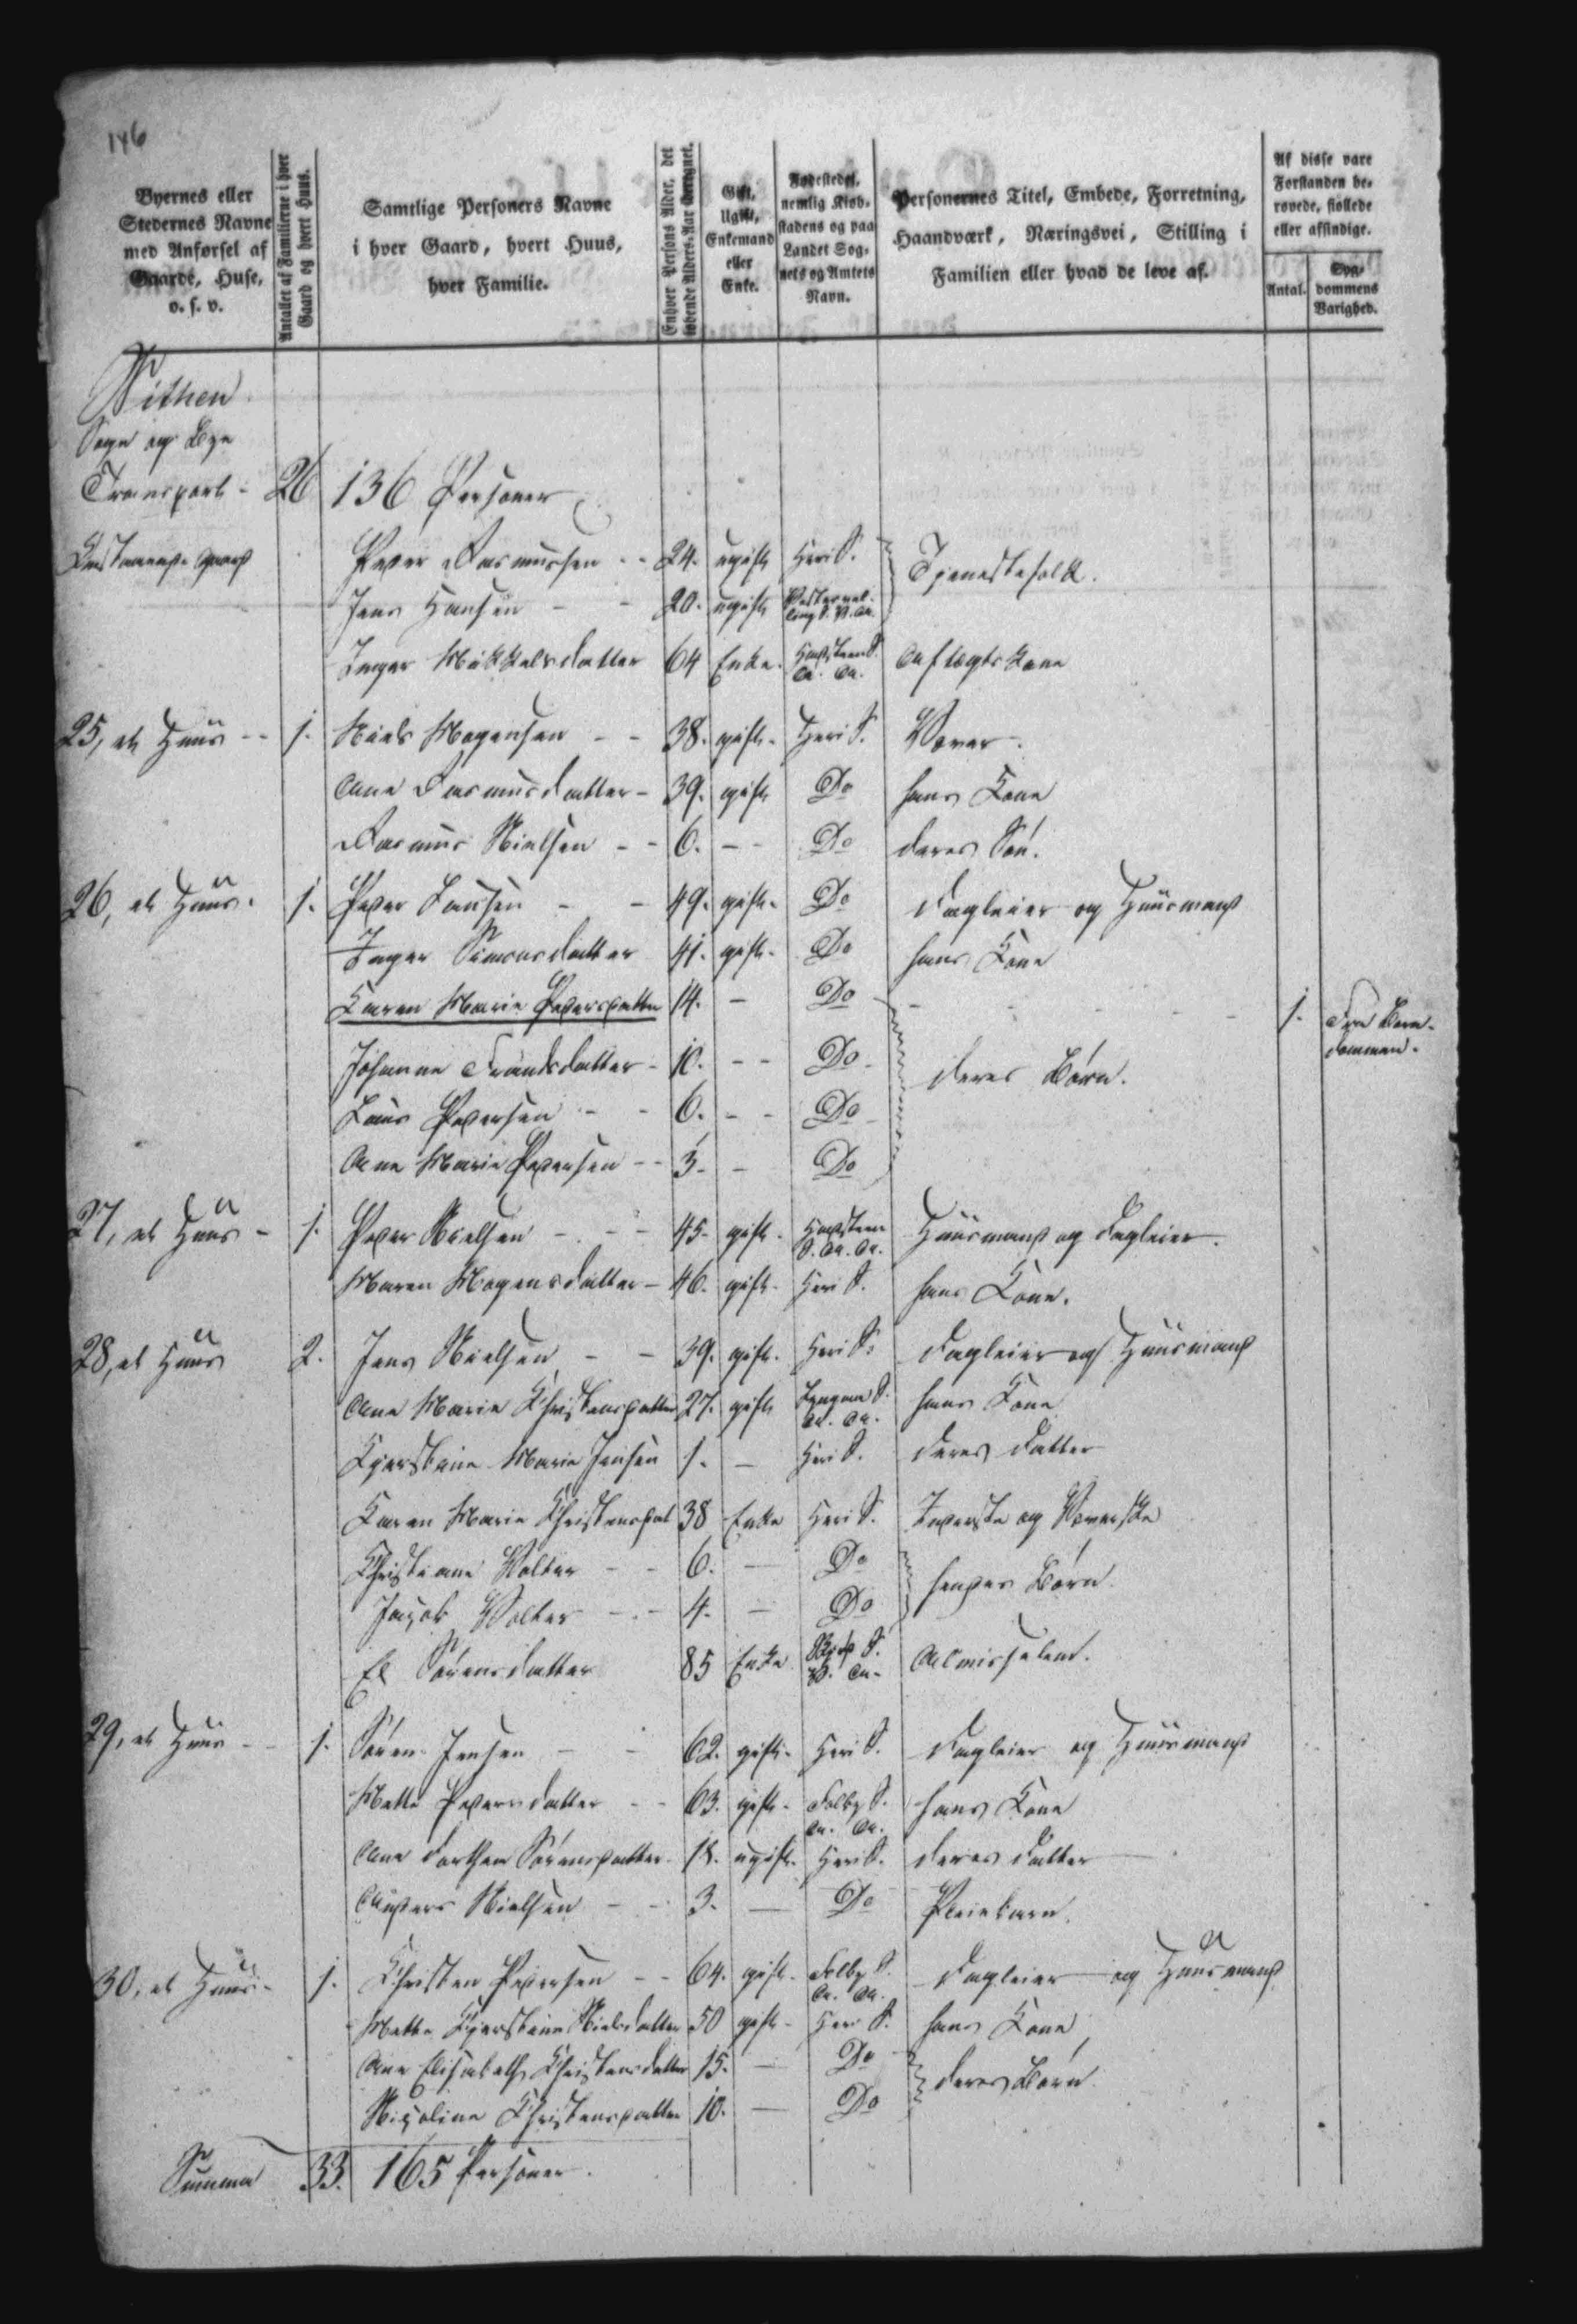 146
Byernes eller
Stedernes Navne
med Anførsel af
Gaarde, Huse,
o. s. v.
Antallet af Familierne i hver
Gaard og hvert Huus.
Samtlige Personers Navne
i hver Gaard, hvert Huus,
hver Familie.
Enhver Persons Alder, det
løbende Alders-Aar iberegnet.
Gift,
Ugift,
Enkemand
eller
Enke.
Fødestedet,
nemlig Kiøb-
stadens og paa
Landet Sog-
nets og Amtets
Navn.
Personernes Titel, Embede, Forretning,
Haandværk, Næringsvei, Stilling i
Familien eller hvad de leve af.
Af disse vare
Forstanden be-
røvede, fiollede
eller afsindige.
Antal.
Syg-
dommens
Varighed.
Vithen
Sogn og Bye
Transport - 26 136 Personer
Peder Rasmussen - - 24. ugift Heri S. Tjenestefolk.
Jens Hansen - - 20. ugift
Inger Mikkelsdatter 64 Enke. Hadsteen S. Aa. Aa. Aftægtskone
25, et Huus - - 1. Niels Mogensen - - 38. gift. Heri S. Væver.
Ane Rasmusdatter - 39. gift Do hans Kone
Rasmus Nielsen - - 6. - - Do deres Søn.
26, et Huus. 1. Peder Lausen - - 49. gift. Do Dagleier og Huusmand
Inger Simonsdatter 41. gift. Do hans Kone
Karen Marie Pedersdatter 14. - Do - - - - - 1. Fra Barn-
dommen.
Johanne Frandsdatter - 10. - - Do deres Børn.
Laus Pedersen - - 6. - - Do
Ane Marie Pedersen - - 3. - Do
27, et Huus - 1. Peder Nielsen - - - 45. gift. Hadsteen S. Aa. Aa. Huusmand og Dagleier.
Maren Mogensdatter - 46. gift. Heri S. hans Kone.
28, et Huus 2. Jens Nielsen - - 39. gift. Heri S. Dagleier og Huusmand
Ane Marie Christensdatter 27. gift Lyngaae S. Aa. Aa. hans Kone
Kjerstine Marie Jensen 1. - Heri S. deres Datter
Karen Marie Christensdat 38 Enke Heri S. Inderste og Væverske
Christiane Wolter - - 6. - Do hendes Børn.
Jacob Wolter - - 4. - Do
El Sørensdatter 85 Enke Almisselem.
29, et Huus - - 1. Søren Jensen - - 62. gift. Heri S. Dagleier og Huusmand
Mette Pedersdatter - - 63. gift. Folby S. Aa. Aa. hans Kone
Ane Dorthea Sørensdatter 18. ugift. Heri S. deres Datter
Anders Nielsen - - 3. - Do Pleiebarn.
30, et Huus - 1. Christen Pedersen - - 64. gift. Folby S. Aa. Aa. Dagleier og Huusmand
Mette Kjerstine Nielsdatter 50 gift - Heri S. hans Kone
Ane Elisabeth Christensdatter 15. - Do deres Børn.
Nicoline Christensdatter 10. - Do
Summa 33. 165 Personer.